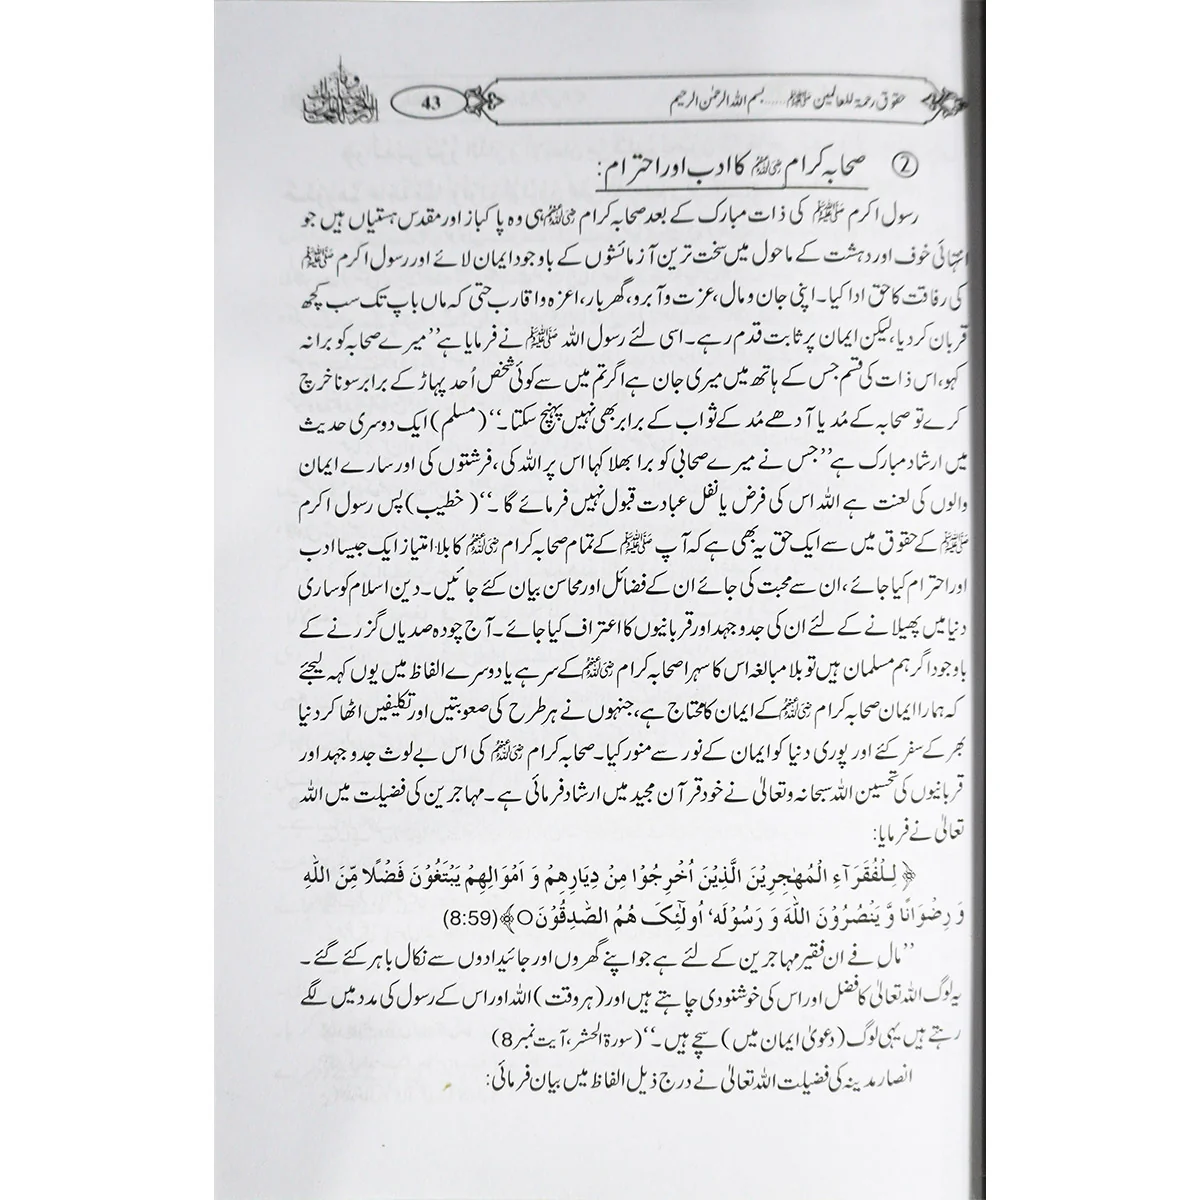 حقوق رحمۃ للعالمین ﷺ......بسم اللہ الرحمٰن الرحیم
43
② صحابہ کرام رضی اللہ عنہم کا ادب اور احترام:
رسول اکرم ﷺ کی ذات مبارک کے بعد صحابہ کرام رضی اللہ عنہم ہی وہ پاکباز اور مقدس ہستیاں ہیں جو
انتہائی خوف اور دہشت کے ماحول میں سخت ترین آزمائشوں کے باوجود ایمان لائے اور رسول اکرم ﷺ
کی رفاقت کا حق ادا کیا۔ اپنی جان و مال، عزت و آبرو، گھر بار، اعزہ و اقارب حتی کہ ماں باپ تک سب کچھ
قربان کر دیا، لیکن ایمان پر ثابت قدم رہے۔ اسی لئے رسول اللہ ﷺ نے فرمایا ہے ’’میرے صحابہ کو برا نہ
کہو، اس ذات کی قسم جس کے ہاتھ میں میری جان ہے اگر تم میں سے کوئی شخص اُحد پہاڑ کے برابر سونا خرچ
کرے تو صحابہ کے مُد یا آدھے مُد کے ثواب کے برابر بھی نہیں پہنچ سکتا۔‘‘ (مسلم) ایک دوسری حدیث
میں ارشاد مبارک ہے ’’جس نے میرے صحابی کو برا بھلا کہا اس پر اللہ کی، فرشتوں کی اور سارے ایمان
والوں کی لعنت ہے اللہ اس کی فرض یا نفل عبادت قبول نہیں فرمائے گا۔‘‘ (خطیب) پس رسول اکرم
ﷺ کے حقوق میں سے ایک حق یہ بھی ہے کہ آپ ﷺ کے تمام صحابہ کرام رضی اللہ عنہم کا بلا امتیاز ایک جیسا ادب
اور احترام کیا جائے، ان سے محبت کی جائے ان کے فضائل اور محاسن بیان کئے جائیں۔ دین اسلام کو ساری
دنیا میں پھیلانے کے لئے ان کی جدوجہد اور قربانیوں کا اعتراف کیا جائے۔ آج چودہ صدیاں گزرنے کے
باوجود اگر ہم مسلمان ہیں تو بلا مبالغہ اس کا سہرا صحابہ کرام رضی اللہ عنہم کے سر ہے یا دوسرے الفاظ میں یوں کہہ لیجئے
کہ ہمارا ایمان صحابہ کرام رضی اللہ عنہم کے ایمان کا محتاج ہے، جنہوں نے ہر طرح کی صعوبتیں اور تکلیفیں اٹھا کر دنیا
بھر کے سفر کئے اور پوری دنیا کو ایمان کے نور سے منور کیا۔ صحابہ کرام رضی اللہ عنہم کی اس بے لوث جدوجہد اور
قربانیوں کی تحسین اللہ سبحانہ و تعالیٰ نے خود قرآن مجید میں ارشاد فرمائی ہے۔ مہاجرین کی فضیلت میں اللہ
تعالیٰ نے فرمایا:
﴿لِلْفُقَرَآءِ الْمُهٰجِرِيْنَ الَّذِيْنَ اُخْرِجُوْا مِنْ دِيَارِهِمْ وَ اَمْوَالِهِمْ يَبْتَغُوْنَ فَضْلًا مِّنَ اللّٰهِ
وَ رِضْوَانًا وَّ يَنْصُرُوْنَ اللّٰهَ وَ رَسُوْلَهٗ اُولٰٓئِكَ هُمُ الصّٰدِقُوْنَ○﴾(8:59)
’’مالِ فے ان فقیر مہاجرین کے لئے ہے جو اپنے گھروں اور جائیدادوں سے نکال باہر کئے گئے۔
یہ لوگ اللہ تعالیٰ کا فضل اور اس کی خوشنودی چاہتے ہیں اور (ہر وقت) اللہ اور اس کے رسول کی مدد میں لگے
رہتے ہیں یہی لوگ (دعویٰ ایمان میں) سچے ہیں۔‘‘ (سورۃ الحشر، آیت نمبر 8)
انصار مدینہ کی فضیلت اللہ تعالیٰ نے درج ذیل الفاظ میں بیان فرمائی: